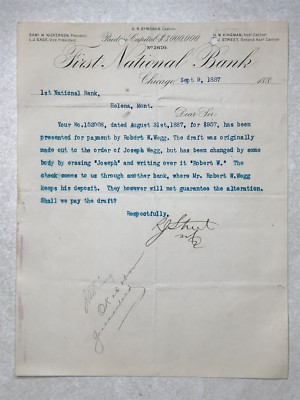 SAM'L M. NICKERSON, President.
L.J. GAGE, Vice President.
H.R. SYMONDS, Cashier.
H.M. KINGMAN, Ass't Cashier.
R.J. STREET, Second Ass't Cashier.
Paid up Capital $3,000,000
First National Bank
Chicago, Sept 9, 1887 188
1st National Bank,
Helena, Mont.
Dear Sir:
Your No.152008, dated August 31st,1887, for $957, has been
presented for payment by Robert W.Wegg. The draft was originally
made out to the order of Joseph Wegg, but has been changed by some
body by erasing "Joseph" and writing over it "Robert W." The
check comes to us through another bank, where Mr. Robert W.Wegg
keeps his deposit. They however will not guarantee the alteration.
Shall we pay the draft?
Respectfully,
RJStreet